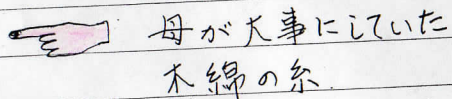 母が大事にしていた
木綿の糸.